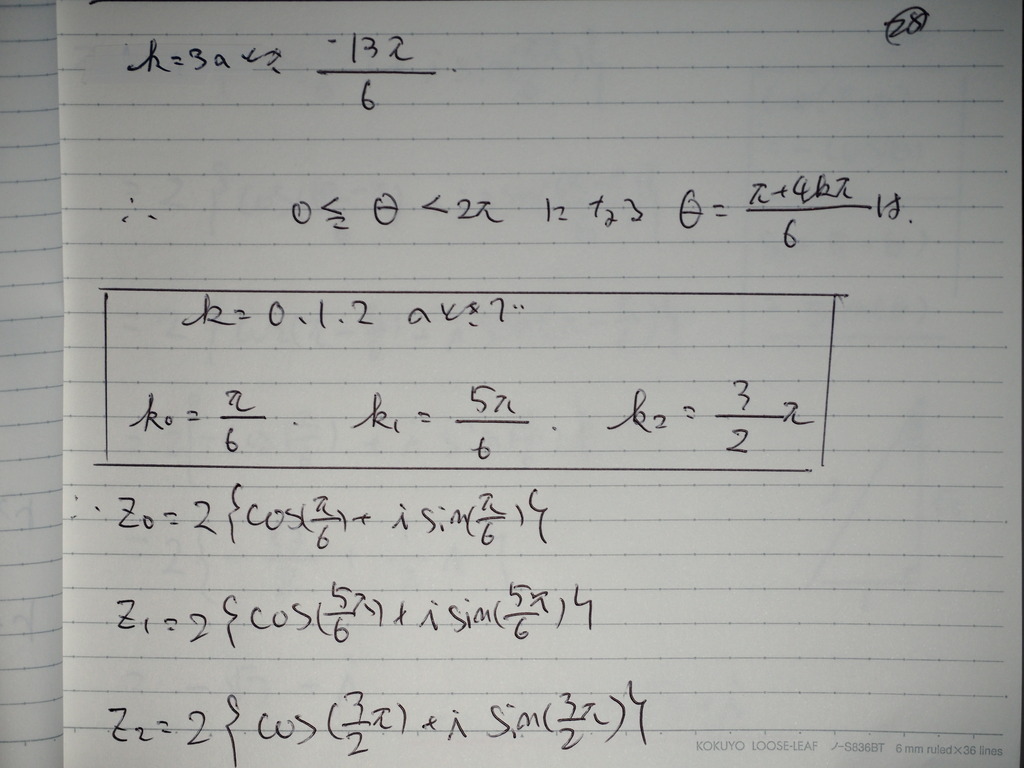 28
k=3のとき -13π/6.
∴ 0≦θ<2π にする θ=π+4kπ/6 は.
k=0、1、2 のときで..
k₀=π/6. k₁=5π/6. k₂=3/2π
∴ Z₀=2{cos(π/6)+i sin(π/6)}
Z₁=2{cos(5π/6)+i sin(5π/6)}
Z₂=2{cos(3/2π)+i sin(3/2π)}
KOKUYO LOOSE-LEAF ノ-S836BT 6 mm ruled×36 lines